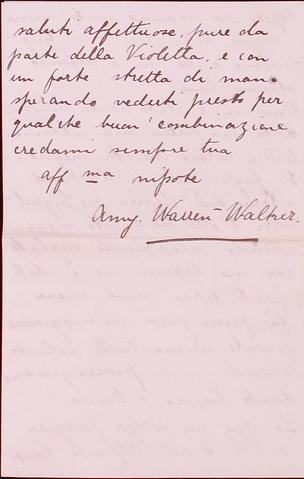 saluti affettuose, pure da
parte della Violetta, e con
un forte stretta di mano
sperando vederti presto per
qualche buon' combinazione
credami sempre tua
aff ma nipote
Amy. Warren Walker.